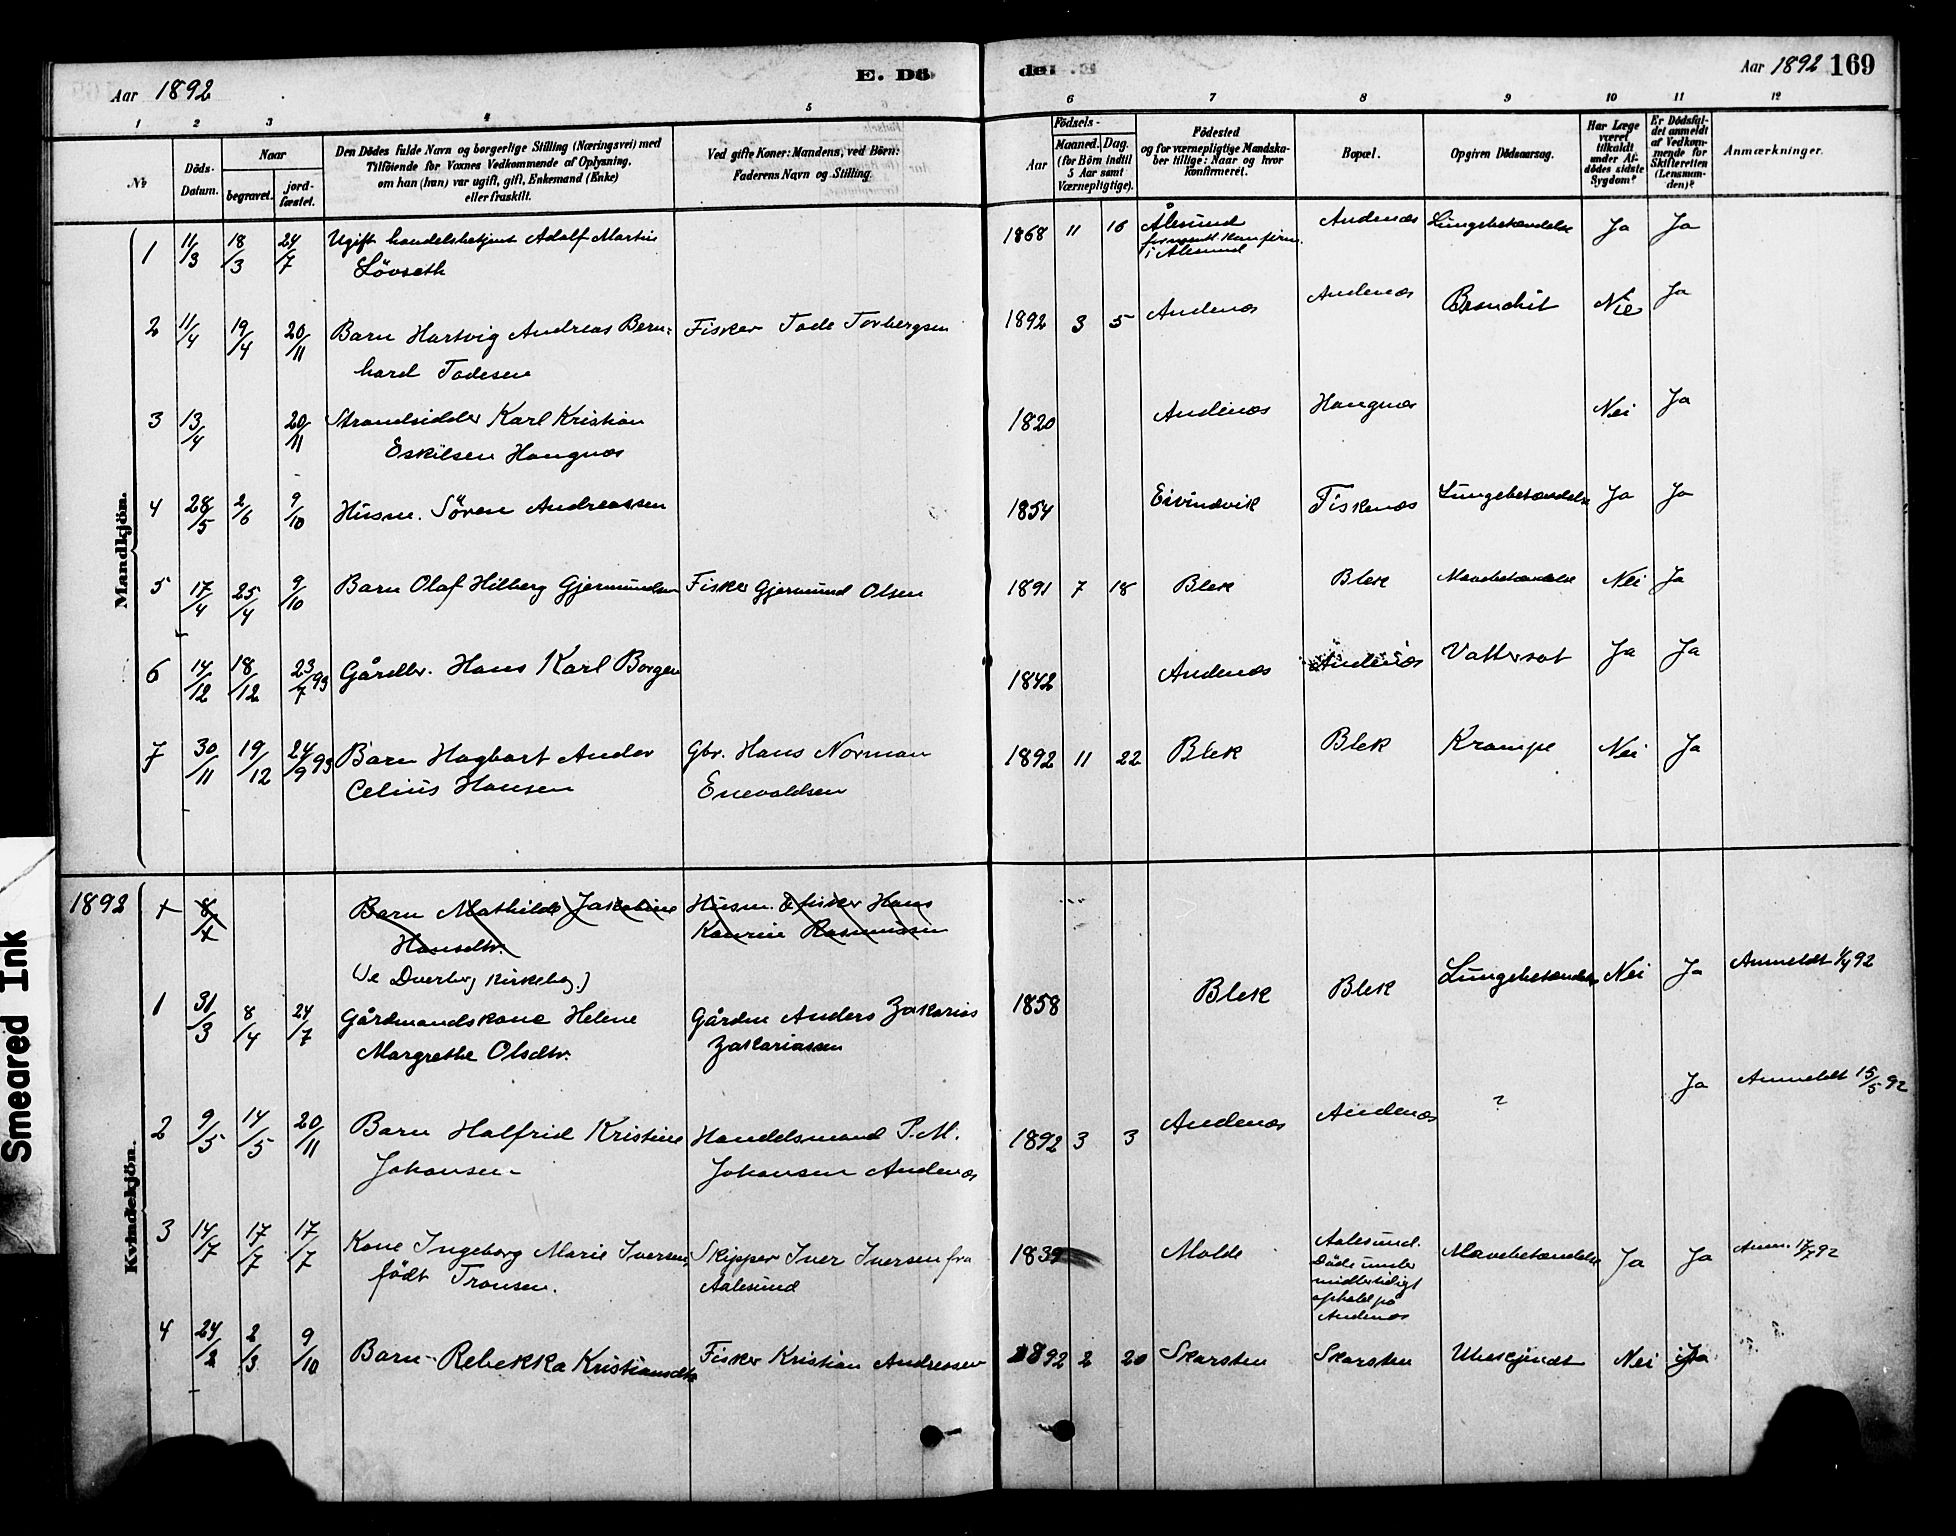 Aar 1892
E. Dö
de.
Aar 1892 169
1 2 3 4 5 6 7 8 9 10 11 12
№
Döds-
Datum.
Naar
begravet.
jord-
fæstet.
Den Dödes fulde Navn og borgerlige Stilling (Næringsvei) med
Tilföiende for Voxnes Vedkommende af Oplysning,
om han (hun) var ugift, gift, Enkemand (Enke)
eller fraskilt.
Ved gifte Koner: Mandens, ved Börn:
Faderens Navn og Stilling.
Födsels-
Aar
Maaned. Dag.
(for Börn indtil
5 Aar samt
Værnepligtige).
Födested
og for værnepligtige Mandska-
ber tillige: Naar og hvor
konfirmeret.
Bopæl.
Opgiven Dödsaarsag.
Har Læge
været
tilkaldt
under Af-
dödes sidste
Sygdom?
Er Dödsfal-
det anmeldt
af Vedkom-
mende for
Skifteretten
(Lensman-
den)?
Anmærkninger.
Mandkjön.
1 11/3 18/3 24/7 Ugift handelsbetjent Adolf Martin 1868 11 16 Ålesund Andenæs Lungebetændelse Ja Ja
Lövseth
i Ålesund
2 11/4 19/4 20/11 Barn Hartvig Andreas Bern- Fisker Tode Torbergsen 1892 3 5 Andenæs Andenæs Bronchit Nei Ja
hard Todesen
3 13/4 20/11 Strandsidder Karl Kristian 1820 Andenæs Haugnæs Nei Ja
Eskilsen Haugnæs
4 28/5 2/6 9/10 Husm. Sören Andreassen 1854 Eivindvik Fiskenæs Lungebetændelse Ja Ja
5 17/4 25/4 9/10 Barn Olaf Hilberg Gjermundsen Fisker Gjermund Olsen 1891 7 18 Blek Blek Mavebetændelse Nei Ja
6 14/12 18/12 23/7 93 Gårdbr. Hans Karl Borgen 1842 Andenæs Andenæs Vattersot Ja Ja
7 30/11 19/12 24/9 93 Barn Hagbart Ander Gbr. Hans Norman 1892 11 22 Blek Blek Krampe Nei Ja
Celius Hansen Enevoldsen
1892
Kvindekjön.
+ 8/4 Barn Mathilde Jakobine Husm. & fisker Hans
Hansdtr. Kaurin Rasmussen
(Se Dverberg Kirkebog.)
1 31/3 8/4 24/7 Gårdmandskone Helene Gårdm Anders Zakarias 1858 Blek Blek Lungebetændelse Nei Ja Anmeldt 1/4 92
Margrethe Olsdtr. Zakariassen
2 9/5 14/5 20/11 Barn Halfrid Kristine Handelsmand P. M. 1892 3 3 Andenæs Andenæs ? Ja Anmeldt 15/5 92
Johansen- Johansen Andenæs
3 14/7 17/7 17/7 Kone Ingeborg Marie Iversen, Skipper Iver Iversen fra 1839 Molde Aalesund. Mavebetændelse Ja Ja Anm. 17/7 92
født Tronsen. Aalesund
Döde under
midlertidigt
ophold på
Andenæs
4 24/2 2/3 9/10 Barn- Rebekka Kristiansdtr Fisker Kristian Andressen 1892 2 20 Skarsten Skarsten Ubekjendt Nei Ja
Smeared Ink